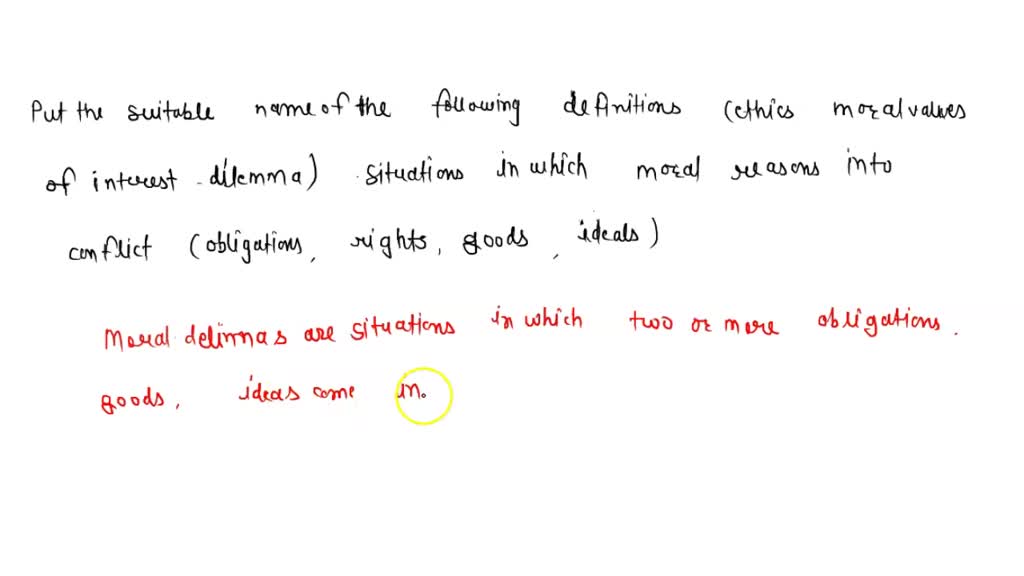 Put the suitable name of the following definitions (ethics moral values
of interest - dilemma) . situations in which moral reasons into
conflict (obligations, rights, goods, ideals)
Moral delimmas are situations in which two or more obligations.
goods, ideas come in.